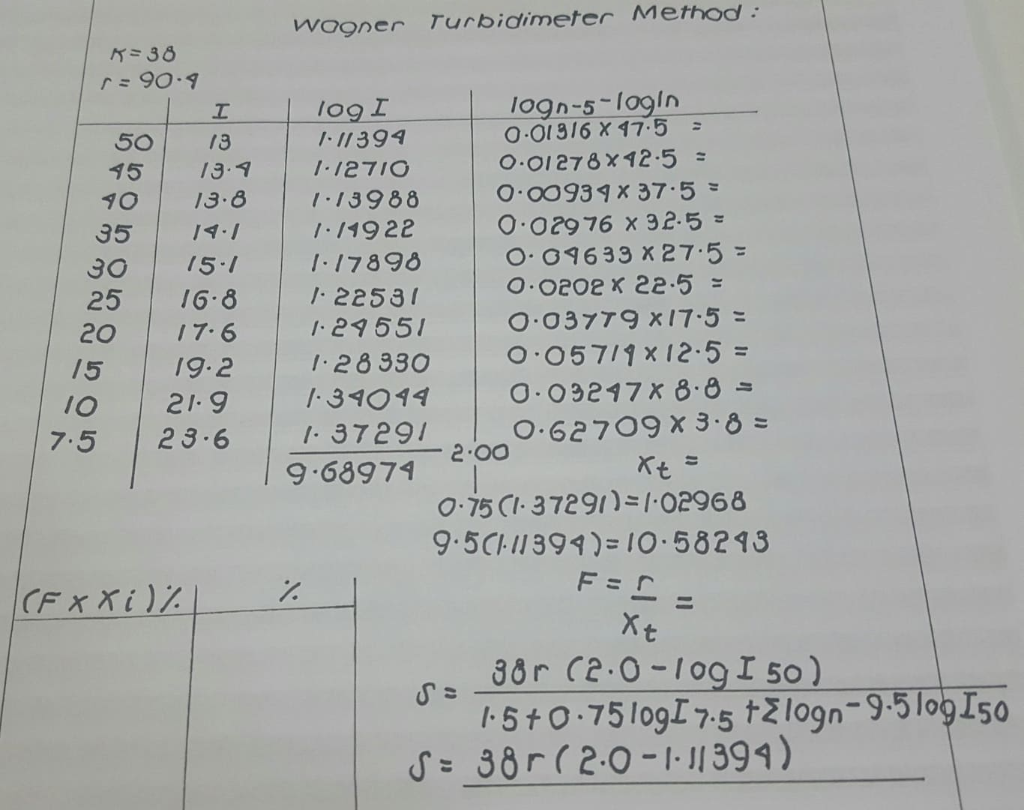 Wagner Turbidimeter Method :
K = 38
r = 90.4
I log I logn-5 - logIn
50 13 1.11394 0.01316 x 47.5 =
45 13.4 1.12710 0.01278 x 42.5 =
40 13.8 1.13988 0.00934 x 37.5 =
35 14.1 1.14922 0.02976 x 32.5 =
30 15.1 1.17898 0.04633 x 27.5 =
25 16.8 1.22531 0.0202 x 22.5 =
20 17.6 1.24551 0.03779 x 17.5 =
15 19.2 1.28330 0.05714 x 12.5 =
10 21.9 1.34044 0.03247 x 8.8 =
7.5 23.6 1.37291 0.62709 x 3.8 =
9.68974 2.00 xt =
0.75(1.37291) = 1.02968
9.5(1.11394) = 10.58243
F = r / xt =
(F x Xi)% %
S = 38r (2.0 - log I 50)
1.5 + 0.75 log I 7.5 + Σ logn - 9.5 log I 50
S = 38r (2.0 - 1.11394)